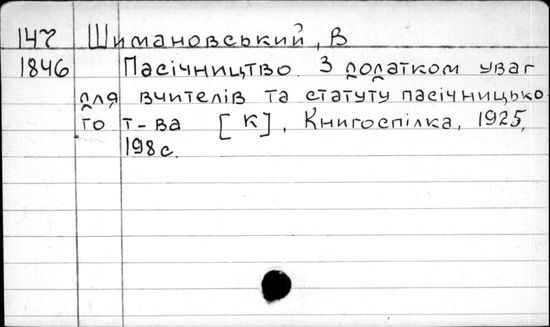 147 Шимановський, В
1846 Пасічництво. З додатком уваг
для вчителів та статуту пасічницько
го т-ва [К], Книгоспілка, 1925,
198 с.